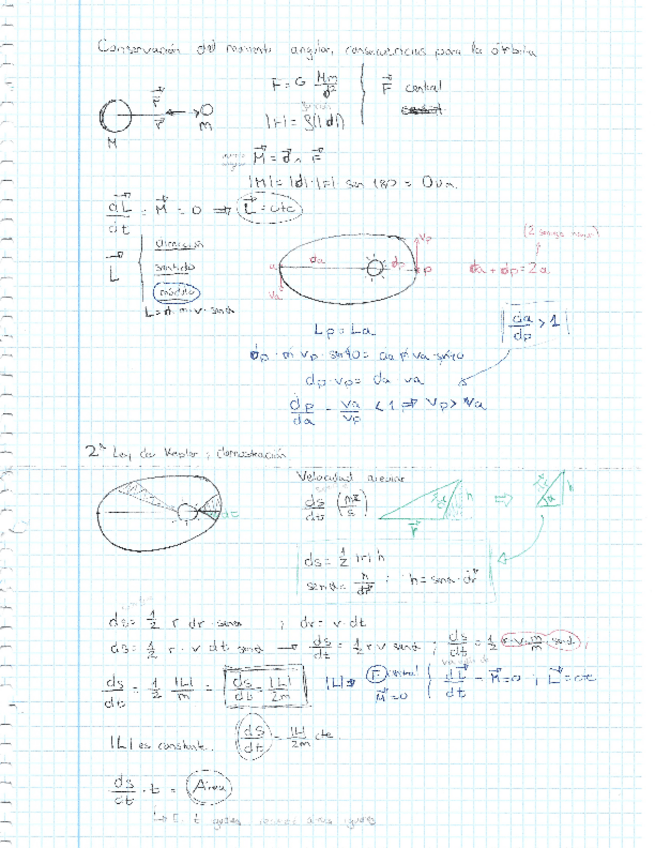 Conservación del momento angular, consecuencias para la órbita
F = G Mm/d² F⃗ central
F⃗
r⃗
M m
función
|F| = f(|d|)
M⃗ = d⃗ ∧ F⃗
|M| = |d|·|F| sen 180 = 0
dL⃗/dt = M⃗ = 0 ⇒ L⃗ = cte
L⃗ dirección
sentido
módulo
L = d·m·v·senα
a da dp p
Va Vp
da + dp = 2a
da/dp > 1
Lp = La
dp · m vp · sen90 = da m va sen90
dp · vp = da · va
dp/da = va/vp < 1 ⇒ Vp > Va
2ª Ley de Kepler; demostración
Velocidad areolar
ds/dt (m²/s)
r⃗ h ⇒ h
ds = 1/2 |r| h
senα = h/dr ; h = senα · dr
ds = 1/2 r dr · senα ; dr = v · dt
ds = 1/2 r · v dt senα → ds/dt = 1/2 r v senα ; ds/dt = 1/2 r·v·m/m senα ;
ds/dt = 1/2 |L|/m = ds/dt = |L|/2m |L| ⇒ F central M⃗ = 0 dL⃗/dt = M⃗ = 0 ; L⃗ = cte
|L| es constante. ds/dt = |L|/2m cte
ds/dt · t = Área